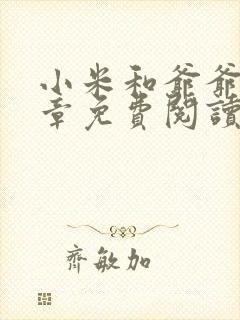 小米和爺爺
章免費閱讀
齊敏加